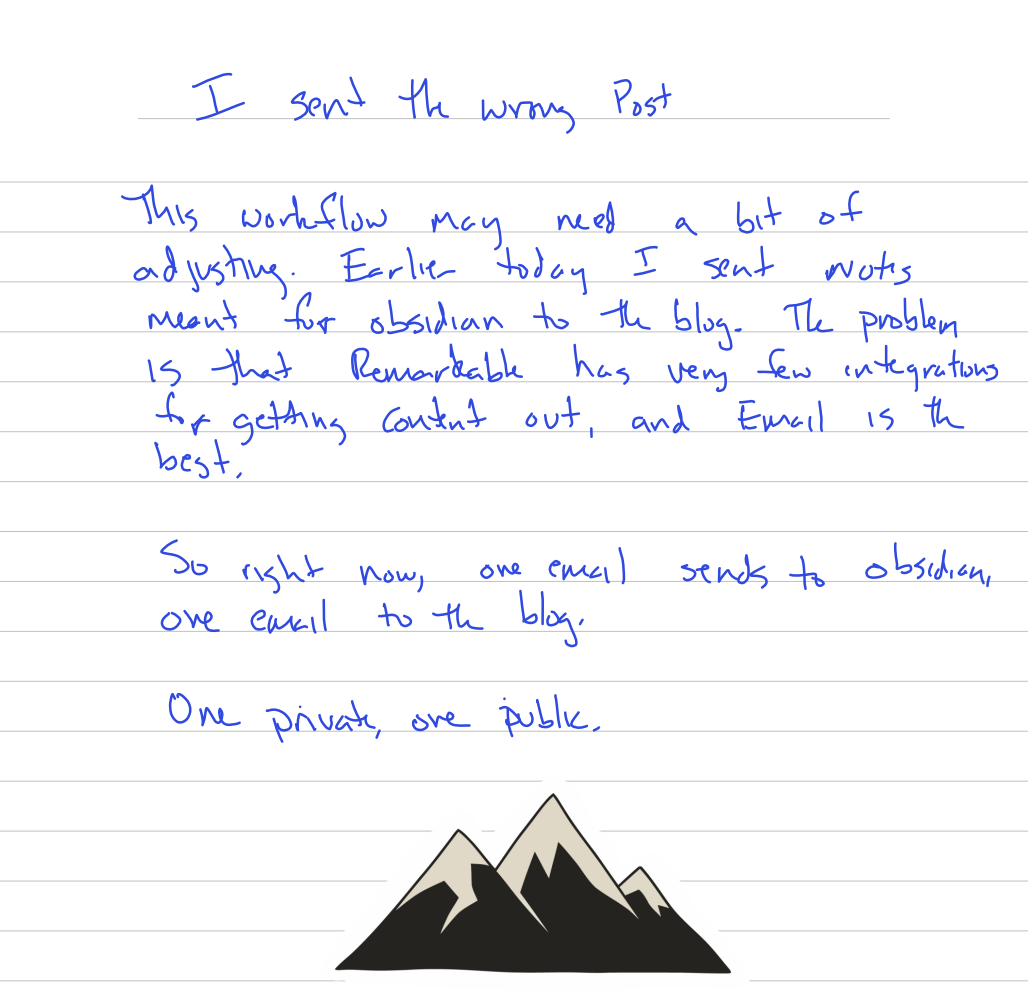 I sent the wrong Post
This workflow may need a bit of
adjusting. Earlier today I sent notes
meant for obsidian to the blog. The problem
is that Remarkable has very few integrations
for getting content out, and Email is the
best.
So right now, one email sends to obsidian,
one email to the blog.
One private, one public.